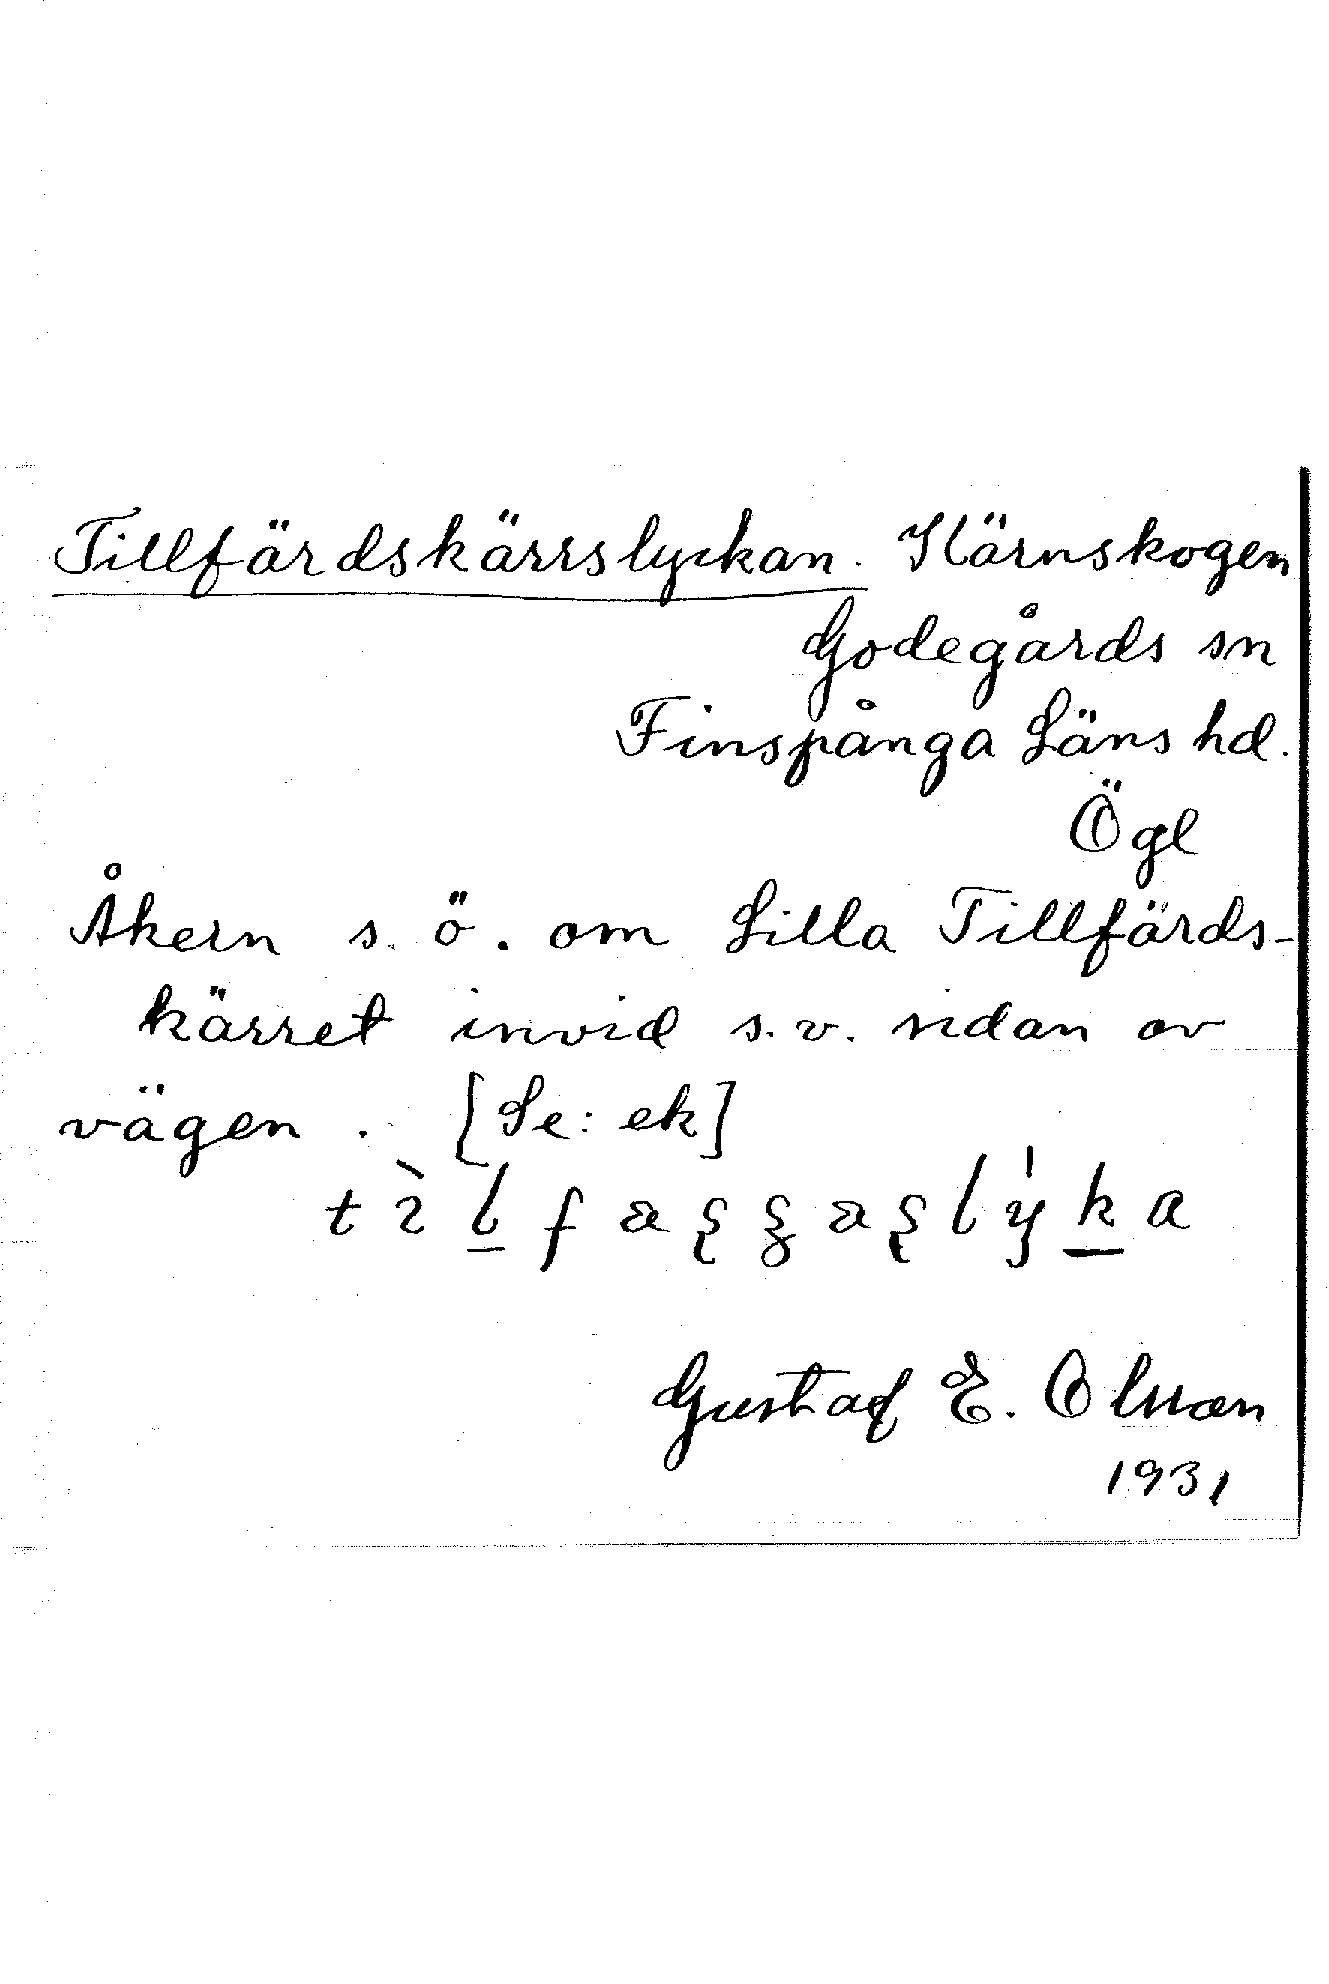 Tillfärdskärrslyckan. Kärnskogen
Godegårds sn
Finspånga Läns hd.
Ögl
Åkern s. ö. om Lilla Tillfärds-
kärret invid s. v. sidan av
vägen. [Se: ek]
Gustaf E. Olsson
1931